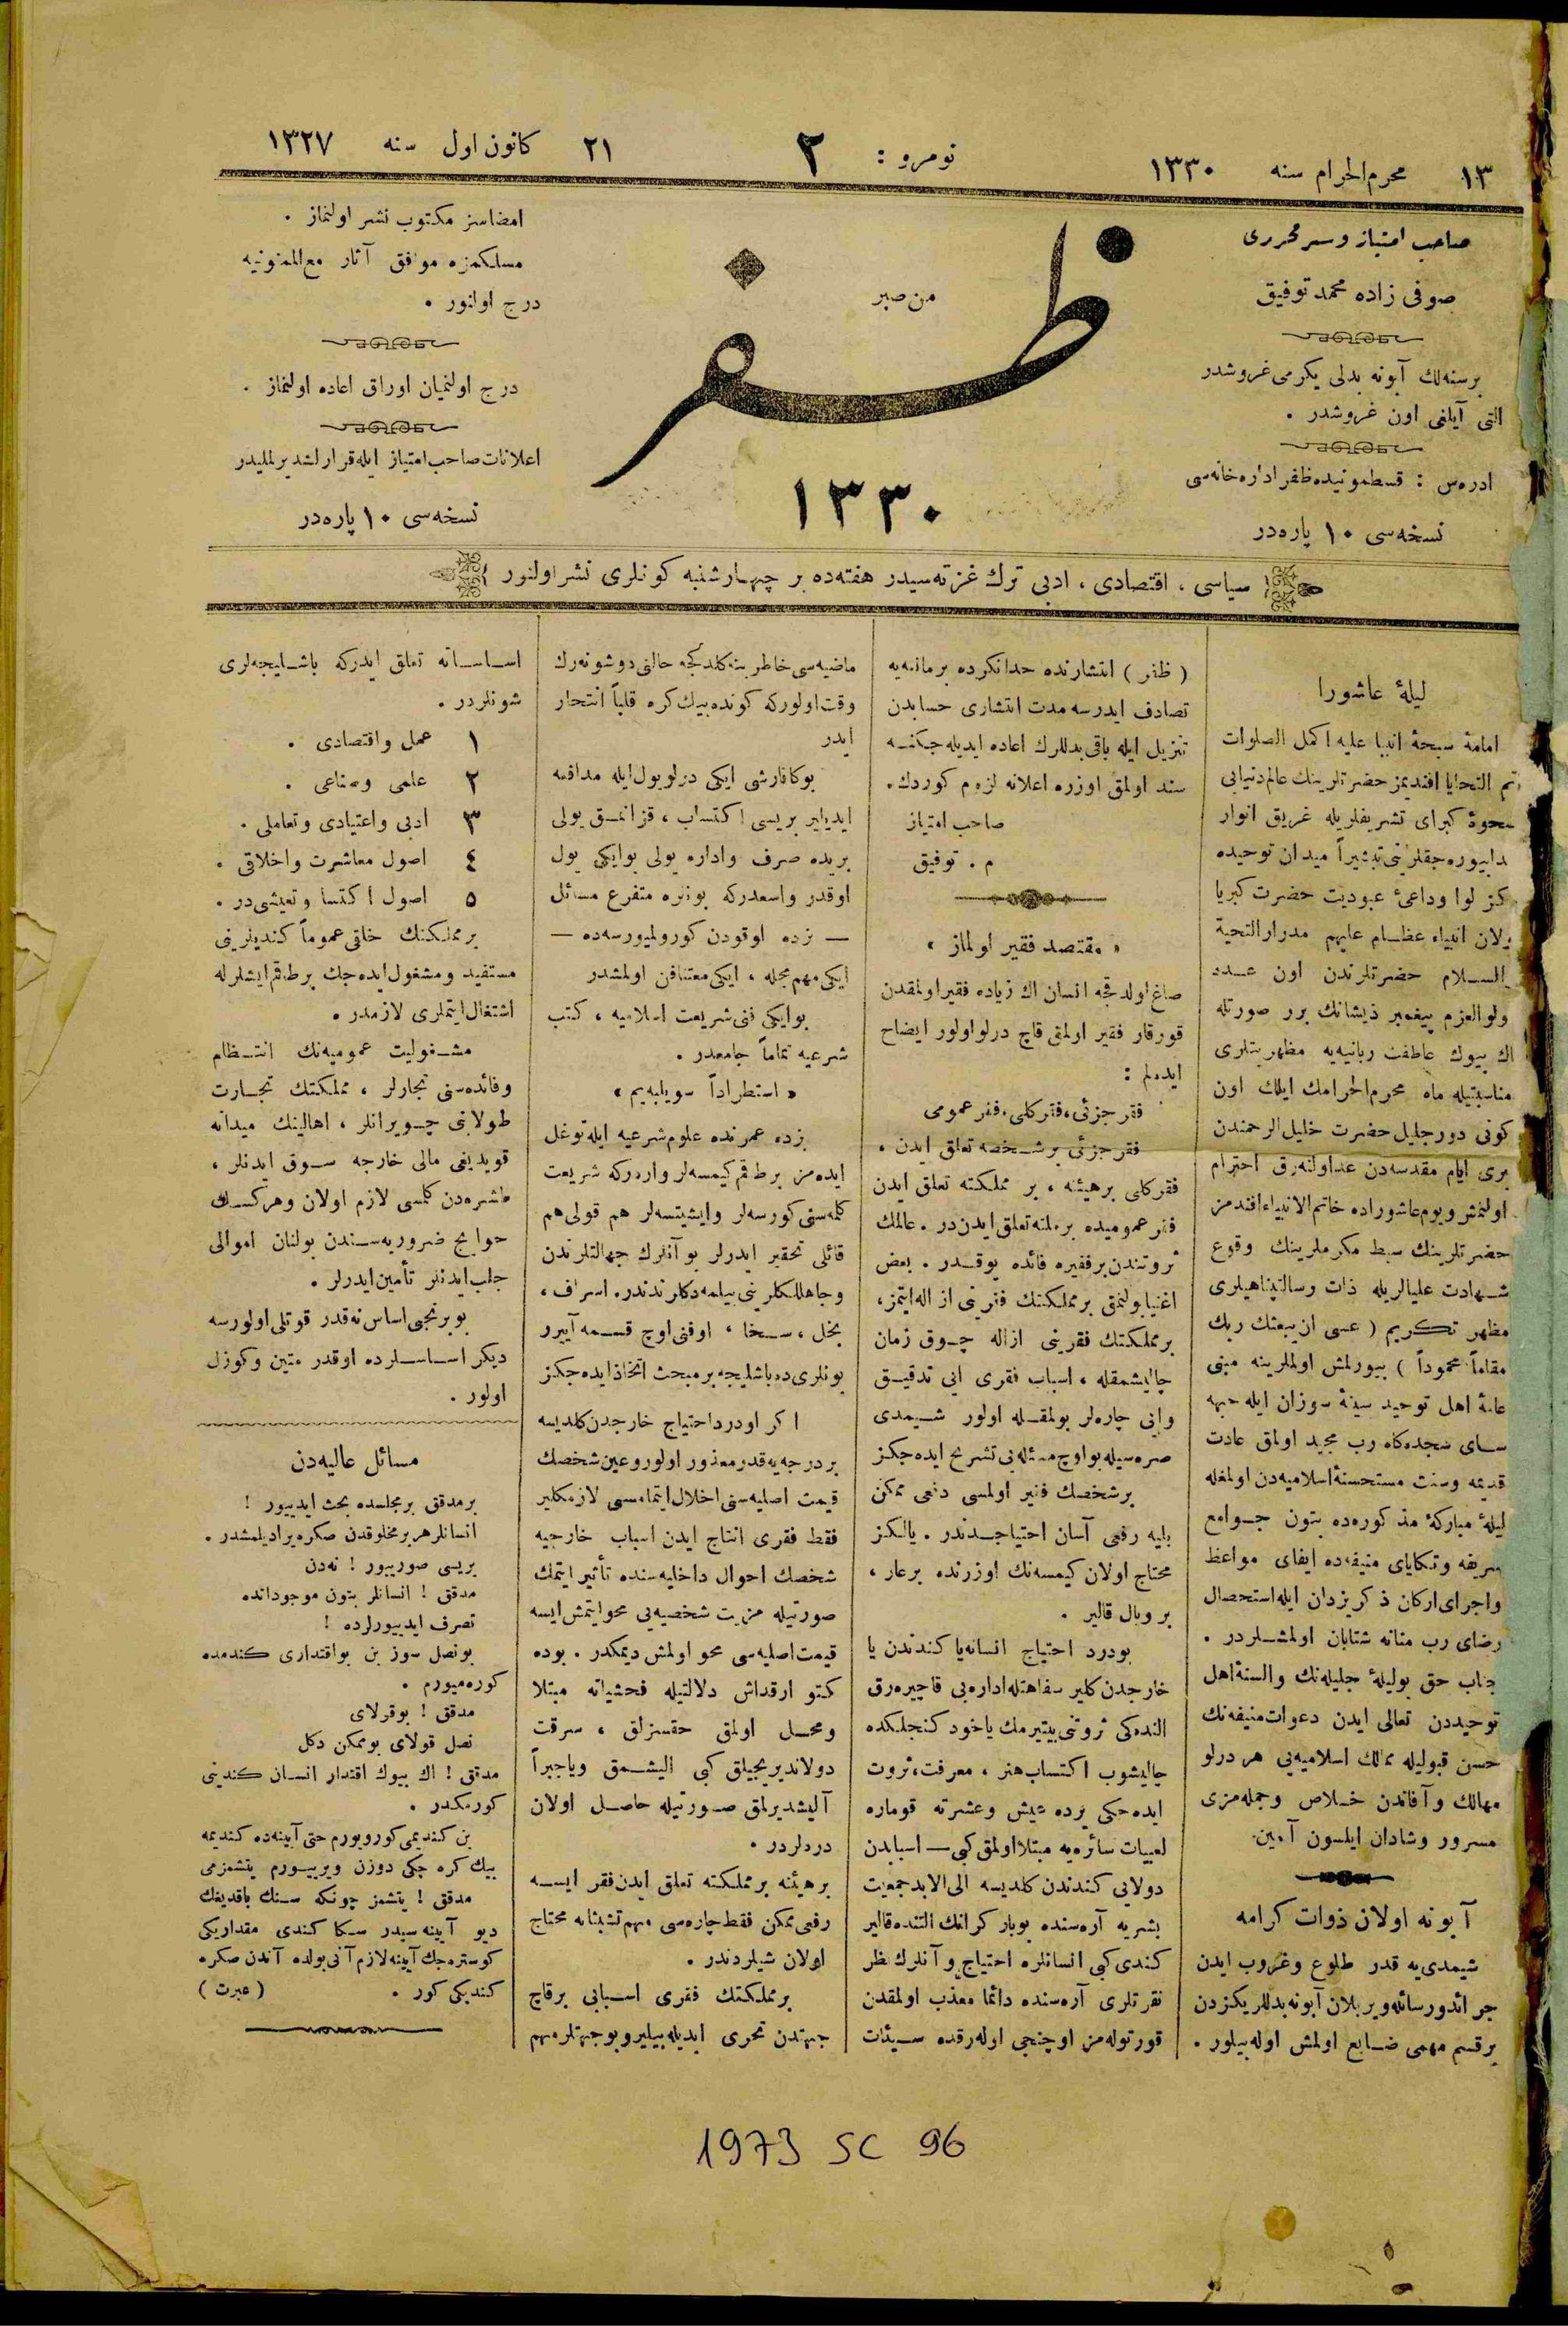 ١٣ محرم الحرام سنه ١٣٣٠
نومرو : ٢
٢١ كانون اول سنه ١٣٢٧
صاحب امتياز و سر محررى
صوفى زاده محمد توفيق
برسنه‌لك آبونه بدلى يكرمى غروشدر
التى آيلغى اون غروشدر .
ادره‌س : قسطمونيده ظفر اداره خانه‌سى
نسخه‌سى ١٠ پاره‌در
من صبر
ظفر
١٣٣٠
امضاسز مكتوب نشر اولنماز .
مسلكمزه موافق آثار مع الممنونيه
درج اولنور .
درج اولنميان اوراق اعاده اولنماز .
اعلانات صاحب امتياز ايله قرارلشديرلمليدر
نسخه‌سى ١٠ پاره‌در
سياسى ، اقتصادى ، ادبى ترك غزته‌سيدر هفته‌ده بر چهارشنبه كونلرى نشر اولنور
ليلۀ عاشورا
امامۀ سبحۀ انبيا عليه اكمل الصلوات
تم التحايا افنديمز حضرتلرينك عالم دنيايى
كبراى تشريفلريله غريق انوار
ميدان توحيده
لوا وداعئ عبوديت حضرت كبريا
انبياء عظام عليهم مدرار التحية
والسلام حضرتلرندن اون عدد
ولوالعزم پيغمبر ذيشانك برر صورتله
اك بيوك عاطفت ربانيه‌يه مظهريتلرى
مناسبتيله ماه محرم الحرامك ايلك اون
كونى دور جليل حضرت خليل الرحمندن
برى ايام مقدسه‌دن عد اولنه‌رق احترام
اولنمش ويوم عاشوراده خاتم الانبياء افندمز
حضرتلرينك سبط مكرملرينك وقوع
شهادت عليالريله ذات رسالتپناهيلرى
مظهر تكريم ( عسى ان يبعثك ربك
مقاماً محموداً ) بيورلمش اولملرينه مبنى
عامۀ اهل توحيد سينۀ سوزان ايله جبهه
ساى سجده‌كاه رب مجيد اولمق عادت
قديمه وسنت مستحسنۀ اسلاميه‌دن اولمغله
ليلۀ مباركۀ مذكوره‌ده بتون جوامع
شريفه وتكاياى منيفه‌ده ايفاى مواعظ
واجراى اركان ذكر يزدان ايله استحصال
رضاى رب منانه شتابان اولمشلردر .
جناب حق بوليلۀ جليله‌نك والسنۀ اهل
توحيددن تعالى ايدن دعوات منيفه‌نك
حسن قبوليله ممالك اسلاميه‌يى هر درلو
مهالك وآفاتدن خلاص وجمله‌مزى
مسرور وشادان ايلسون آمين
آبونه اولان ذوات كرامه
شيمدى‌يه قدر طلوع وغروب ايدن
جرائد ورسائله ويريلان آبونه بدللريكزدن
برقسم مهمى ضايع اولمش اوله‌بيلور .
( ظفر ) انتشارنده حدانكرده برمانعه‌يه
تصادف ايدرسه مدت انتشارى حسابدن
تنزيل ايله باقى بدللرك اعاده ايديله‌جكنه
سند اولمق اوزره اعلانه لزوم كوردك .
صاحب امتياز
م . توفيق
« مقتصد فقير اولماز »
صاغ اولدقجه انسان اك زياده فقير اولمقدن
قورقار فقير اولمق قاچ درلو اولور ايضاح
ايده‌لم :
فقر جزئى ، فقر كلى ، فقر عمومى
فقر جزئى بر شخصه تعلق ايدن ،
فقر كلى برهيئته ، بر مملكته تعلق ايدن
فقر عموميده برملته تعلق ايدن‌در . عالمك
ثروتندن برفقيره فائده يوقدر . بعض
اغنيا بولنمق برمملكتك فقرينى ازاله ايتمز ،
برمملكتك فقرينى ازاله چوق زمان
چاليشمقله ، اسباب فقرى ايى تدقيق
وايى چاره‌لر بولمقله اولور شيمدى
صره‌سيله بواوچ مسئله‌يى تشريح ايده‌جكز
برشخصك فقير اولمسى دفعى ممكن
بليه رفعى آسان احتياجدندر . يالكز
محتاج اولان كيمسه‌نك اوزرنده برعار ،
بر وبال قالير .
بودرد احتياج انسانه‌يا كندندن يا
خارجدن كلير سفاهتله اداره‌يى قاچيره‌رق
النده‌كى ثروتى بيتيرمك ياخود كنجلكده
چاليشوب اكتساب هنر ، معرفت ، ثروت
ايده‌جكى يرده عيش وعشرته قوماره
لعبيات سائره‌يه مبتلا اولمق كبى — اسبابدن
دولايى كندندن كلديسه الى الابد جمعيت
بشريه آره‌سنده بوبار كرانك التنده قالير
كندى كبى انسانلره احتياج و آنلرك نظر
نفرتلرى آره‌سنده دائما معذب اولمقدن
قورتوله‌مز اوچنجى اوله‌رقده سيئات
ماضيه‌سى خاطرينه كلدكجه حالنى دوشونه‌رك
وقت اولوركه كونده بيك كره قلباً انتحار
ايدر
بوكا قارشى ايكى درلو يول ايله مدافعه
ايديلير بريسى اكتساب ، قزانمق يولى
بريده صرف واداره يولى بوايكى يول
اوقدر واسعدركه بونلره متفرع مسائل
— بزده اوقودن كورولميورسه‌ده —
ايكى مهم مجله ، ايكى معتنافن اولمشدر
بوايكى فنى شريعت اسلاميه ، كتب
شرعيه تماماً جامعدر .
« استطراداً سويليه‌يم »
بزده عمرنده علوم شرعيه ايله توغل
ايده‌مز برطاقم كيمسه‌لر واردركه شريعت
كلمه‌سنى كورسه‌لر وايشيتسه‌لر هم قولى هم
قائلى تحقير ايدرلر بو آنلرك جهالتلرندن
وجاهللكلرينى بيلمه‌دكلرندندر . اسراف ،
بخل ، سخا ، اوفنى اوچ قسمه آييرر
بونلرى‌ده باشليجه برمبحث اتخاذ ايده‌جكز
اكر اودرد احتياج خارجدن كلديسه
بردرجه‌يه قدر معذور اولور وعين شخصك
قيمت اصليه‌سنى اخلال ايتمامسى لازمكلير
فقط فقرى انتاج ايدن اسباب خارجيه
شخصك احوال داخليه‌سنده تأثير ايتمك
صورتيله مزيت شخصيه‌يى محو ايتمش ايسه
قيمت اصليه‌سى محو اولمش ديمكدر . بوده
كتو ارقداش دلالتيله فحشياته مبتلا
ومحل اولمق حقسزلق ، سرقت
دولانديريجيلق كبى اليشمق وياجبراً
آليشديرلمق صورتيله حاصل اولان
دردلردر .
برهيئته برمملكته تعلق ايدن فقر ايسه
رفعى ممكن فقط چاره‌سى مهم تشبثاته محتاج
اولان شيلردندر .
برمملكتك فقرى اسبابى برقاچ
جهتدن تحرى ايديله‌بيلير وبوجهتلر مهم
اساساته تعلق ايدركه باشليجه‌لرى
شونلردر .
١ عمل واقتصادى .
٢ علمى وصناعى .
٣ ادبى واعتيادى وتعاملى .
٤ اصول معاشرت واخلاقى .
٥ اصول اكتسا وتعيشى‌در .
برمملكتك خلقى عموماً كنديلرينى
مستفيد ومشغول ايده‌جك برطاقم ايشلرله
اشتغال ايتملرى لازمدر .
مشغوليت عموميه‌نك انتظام
وفائده‌سنى تجارلر ، مملكتك تجارت
طولابنى چويرانلر ، اهالينك ميدانه
قويديغى مالى خارجه سوق ايدنلر ،
طشره‌دن كلمسى لازم اولان وهركسك
حوايج ضروريه‌سندن بولنان اموالى
جلب ايدنلر تأمين ايدرلر .
بوبرنجى اساس نه‌قدر قوتلى اولورسه
ديكر اساسلرده اوقدر متين وكوزل
اولور .
مسائل عاليه‌دن
برمدقق برمجلسده بحث ايدييور !
انسانلر هر بر مخلوقدن صكره يراديلمشدر .
بريسى صورييور ! نه‌دن
مدقق ! انسانلر بتون موجوداتده
تصرف ايدييورلرده !
بونصل سوز بن بواقتدارى كندمده
كوره‌ميورم .
مدقق ! بوقولاى
نصل قولاى بوممكن دكل
مدقق ! اك بيوك اقتدار انسان كندينى
كورمكدر .
بن كنديمى كورويورم حتى آيينه‌ده كنديمه
بيك كره چكى دوزن ويرييورم يتشمزمى
مدقق ! يتشمز چونكه سنك باقديغك
ديو آيينه‌سيدر سكا كندى مقداريكى
كوستره‌جك آيينه لازم آنى بولده آندن صكره
كنديكى كور . ( عبرت )
1973 SC 96